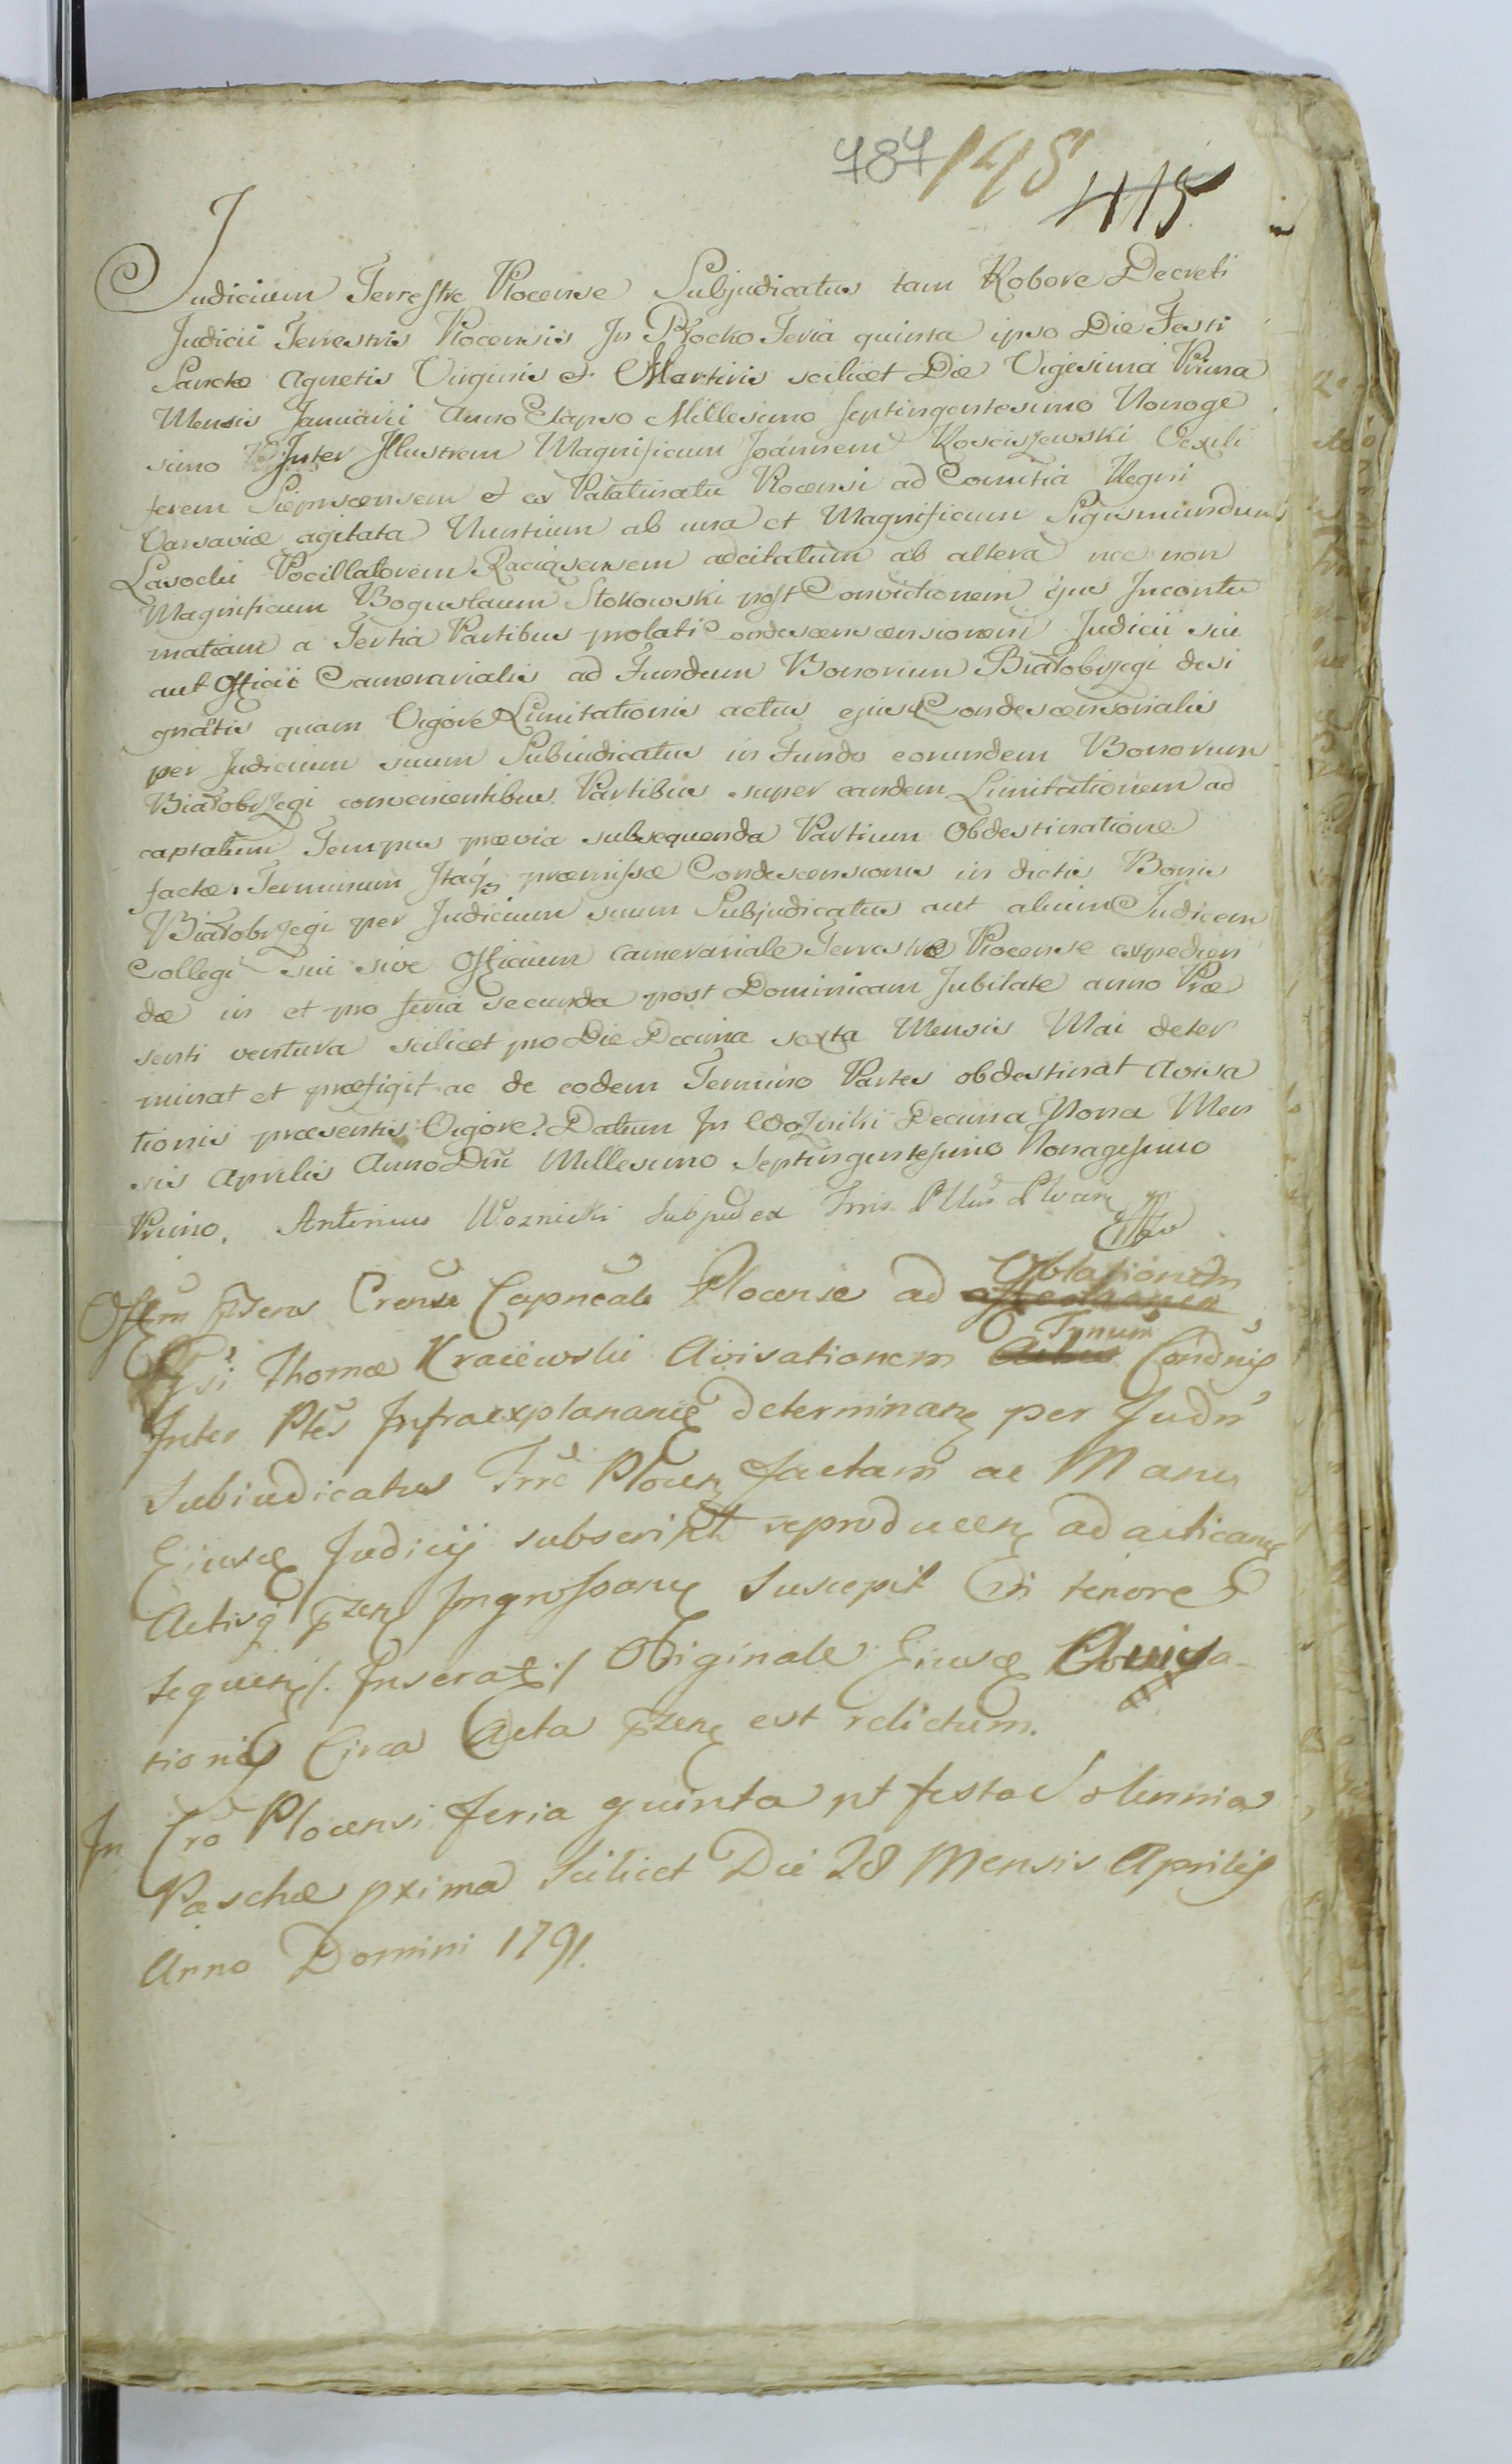 487 198 415
Judicium Terrestre Plocense Subjudicatus tam Robore Decreti
Judicii Terrestris Plocensis In Płocko Feria quinta ipso Die Festi
Sanctæ Agnetis Virginis et Martiris scilicet Die Vigesima Prima
Mensis Januarii Anno Elapso Millesimo Septingentesimo Nonage
simo Inter Illustrem Magnificum Joannem Kosciszewski Vexili
ferem Sieprscensem et ex Palatinatu Plocensi ad Comitia Regni
Varsaviæ agitata Nuntium ab una et Magnificum Sigismundum
Lasocki Pocillatorem Raciąsensem adcitatum ab altera nec non
Magnificum Boguslaum Stokowski post Convictionem ejus Incontu
matiam a Tertia Partibus prolati condescenscensionem Judicii sui
aut Officii Camerarialis ad Fundum Bonorum Białobrzegi desi
gnatis quam Vigore Limitationis actus ejus Condescensorialis
per Judicium suum Subiudicatus in Fundo eorundem Bonorum
Białobrzegi convenientibus Partibus super eandem Limitationem ad
captatum Tempus prævia subsequenda Partium Obdestinatione
factæ. Terminum Itaq præmissæ Condescensionis in dictis Bonis
Białobrzegi per Judicium suum Subjudicatus aut alium Judicem
Collegi sui sive Officium Camerariale Terrestre Plocense expedien
dæ in et pro feria secunda post Dominicam Jubilate anno Præ
senti ventura scilicet pro Die Decima sexta Mensis Mai deter
minat et præfigit ac de eodem Termino Partes obdestinat Avisa
tionis præsentis Vigore. Datum In Woźniki Decima Nona Men
sis Aprilis Anno Dni Millesimo Septingentesimo Nonagesimo
Primo. Antonius Woznicki Subjudex
Offm pzens Crense Capneale Plocense ad Oblationem
Thomæ Kraiewski Avisationem Tnnum Condnis
Inter Ptes Infraexplanane determinan per Judm
Subiudicatus Trre Plocen factam ac Manu
Eiusd Judicij subscript reproducen ad acticand
Activq pzen Ingrossand Suscepit tenore
sequen /. Inserat ./ Originale Eiusd Avisa-
tionis Circa Acta pzen est relictum.
In Cro Plocensi Feria quinta pt festa Solennia
Paschæ pxima Scilicet Die 28 Mensis Aprilis
Anno Domini 1791.